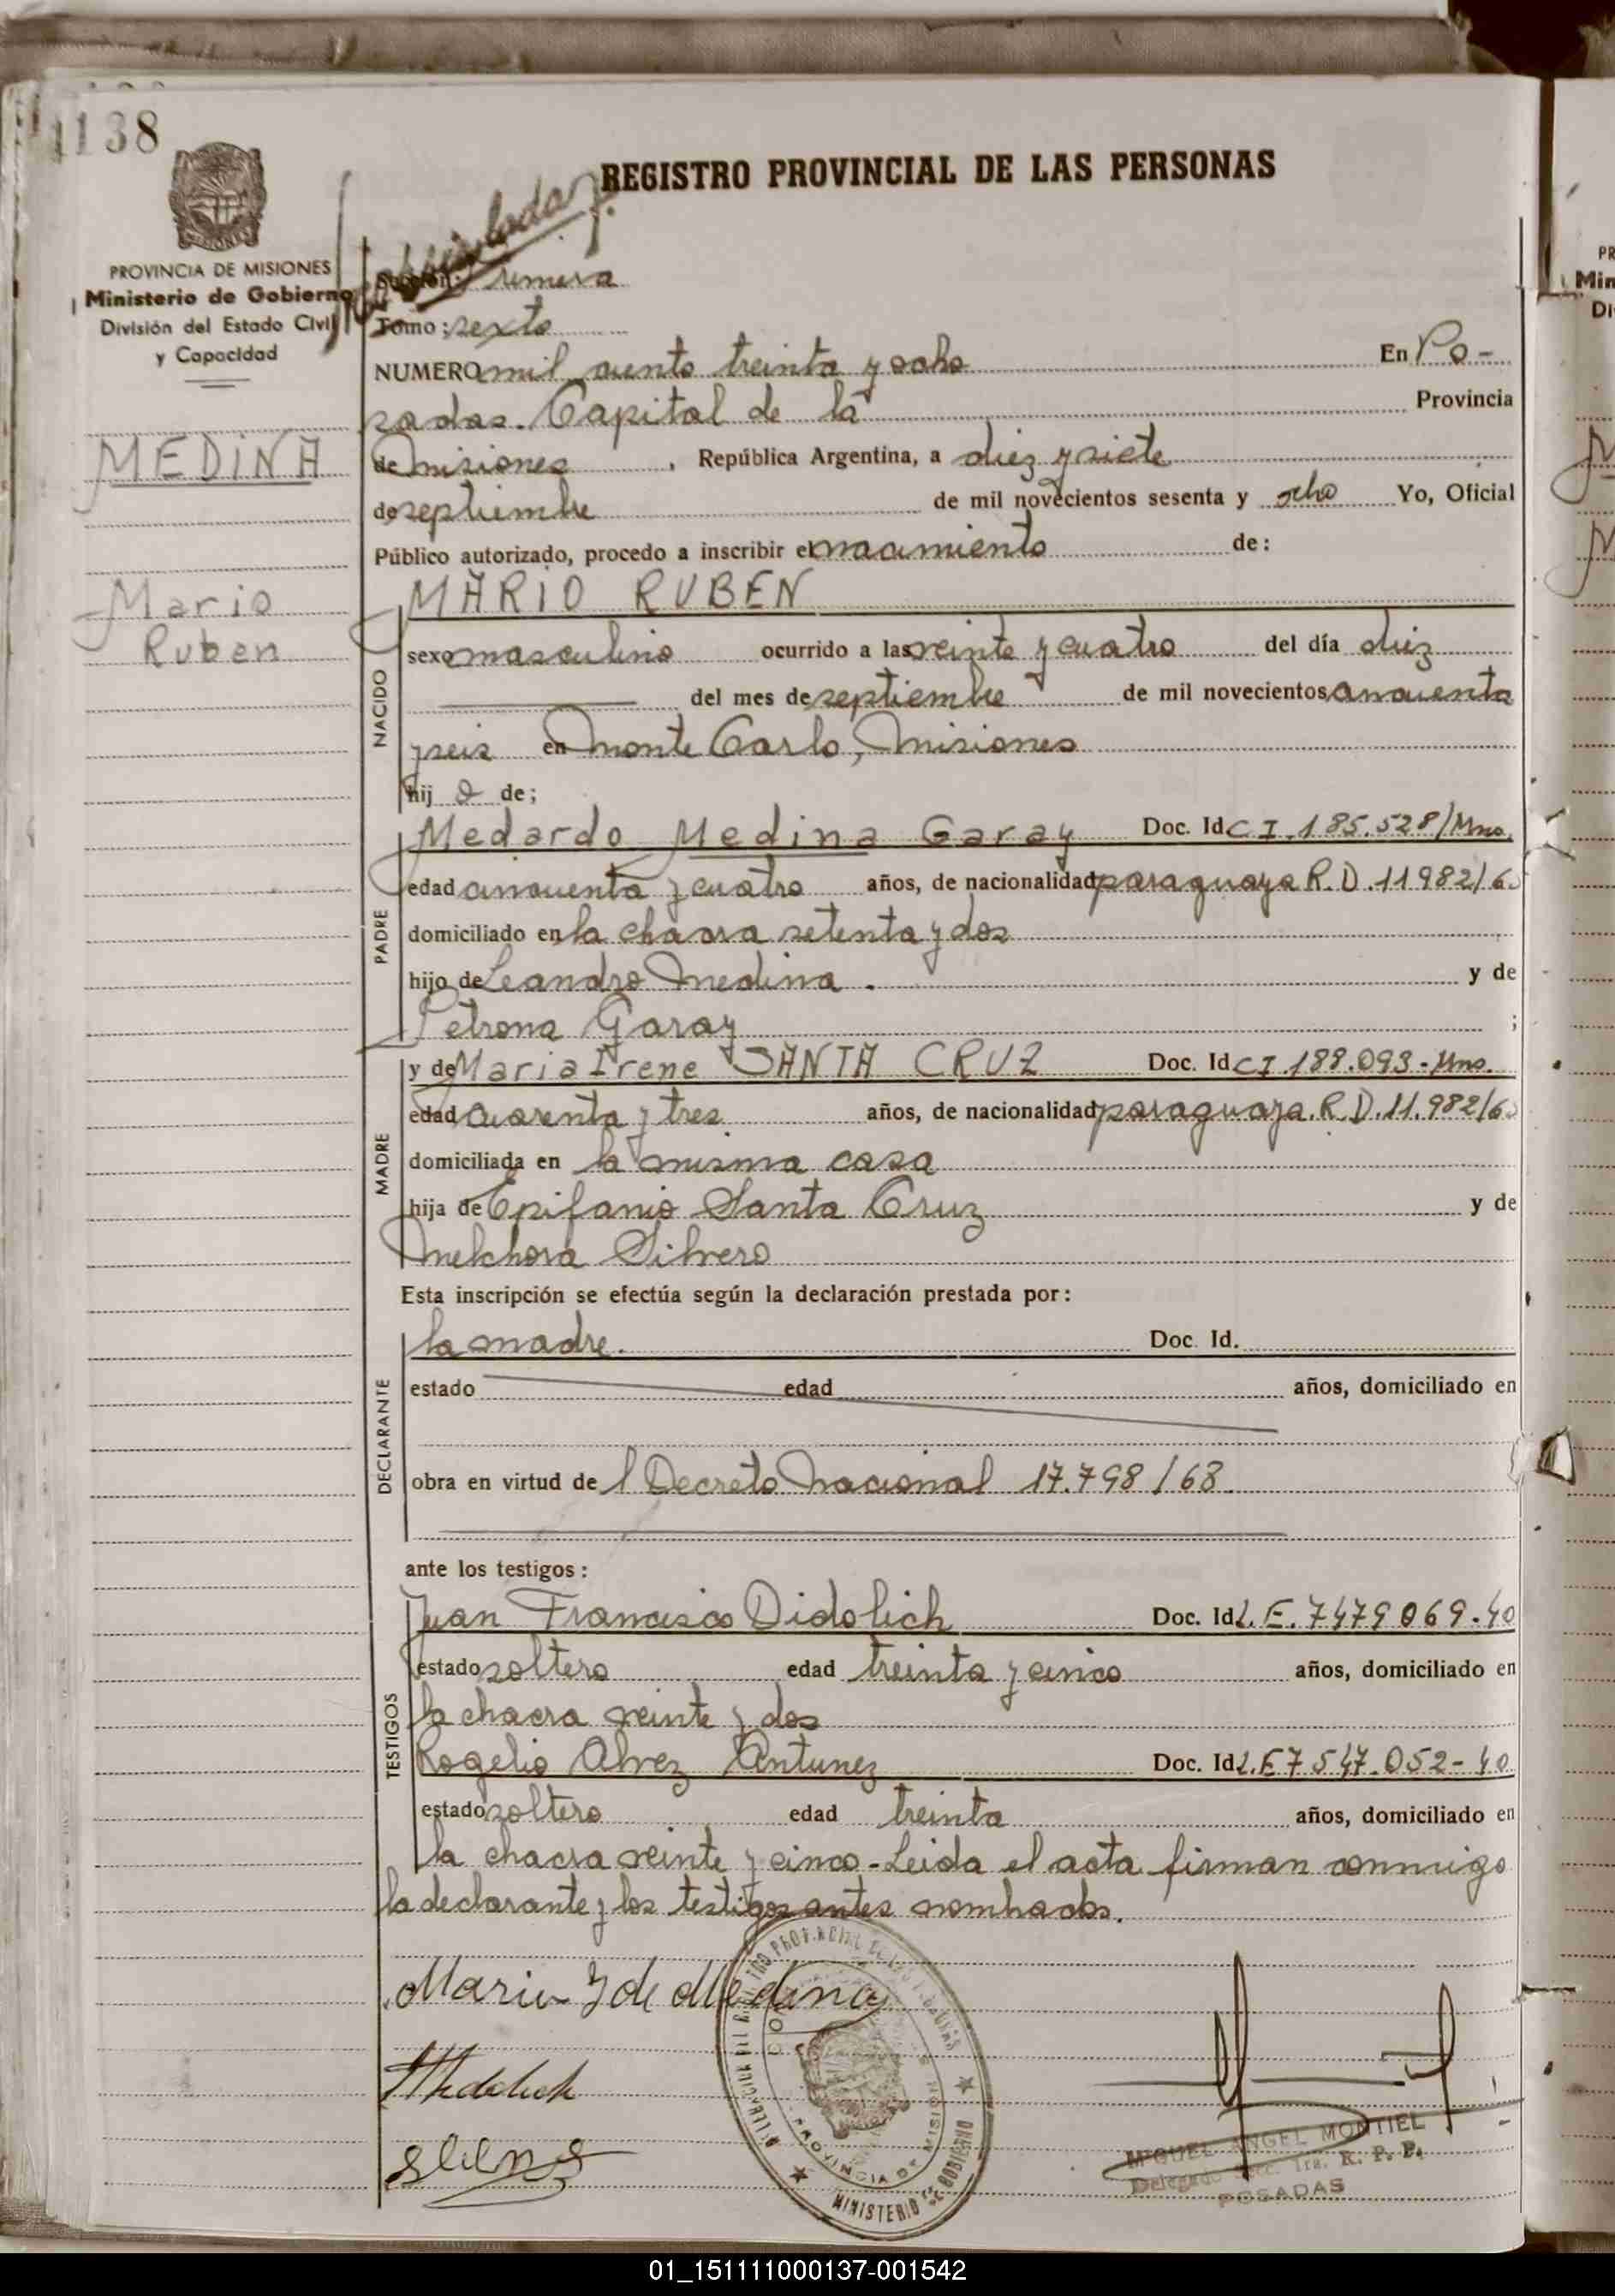 1138
REGISTRO PROVINCIAL DE LAS PERSONAS
PROVINCIA DE MISIONES
Ministerio de Gobierno
División del Estado Civil
y Capacidad
Sección: Primera
Tomo: sexto
NUMERO mil ciento treinta y ocho En Po-
sadas. Capital de la Provincia
MEDINA
de Misiones, República Argentina, a diez y siete
de septiembre de mil novecientos sesenta y ocho Yo, Oficial
Público autorizado, procedo a inscribir el nacimiento de:
Mario
Ruben
MARIO RUBEN
NACIDO
sexo masculino ocurrido a las veinte y cuatro del día diez
del mes de septiembre de mil novecientos cincuenta
y seis en Monte Carlo, Misiones
hij o de;
PADRE
Medardo Medina Garay Doc. Id C I. 185.528/Mnes.
edad cincuenta y cuatro años, de nacionalidad paraguaya R.D. 11982/6
domiciliado en la chacra setenta y dos
hijo de Leandro Medina. y de
Petrona Garay ;
MADRE
y de Maria Irene SANTA CRUZ Doc. Id C I. 188.093-Mnes.
edad cuarenta y tres años, de nacionalidad paraguaya. R.D. 11.982/6
domiciliada en la misma casa
hija de Epifanio Santa Cruz y de
Melchora Silvero
Esta inscripción se efectúa según la declaración prestada por:
DECLARANTE
la madre. Doc. Id.
estado edad años, domiciliado en
obra en virtud de l Decreto Nacional 17.798/68
ante los testigos:
TESTIGOS
Juan Francisco Didolich Doc. Id L.E. 7479069-40
estado soltero edad treinta y cinco años, domiciliado en
la chacra veinte y dos
Rogelio Alvez Antunez Doc. Id L.E 7.547.052-40
estado soltero edad treinta años, domiciliado en
la chacra veinte y cinco-Leida el acta firman conmigo
la declarante y los testigos antes nombrados.
Maria I de Medina
PROVINCIA DE MISIONES
MINISTERIO DE GOBIERNO
MIGUEL ANGEL MONTIEL
Delegado Secc. 1ra. R. P. P.
POSADAS
PR
Min
Di
01_151111000137-001542